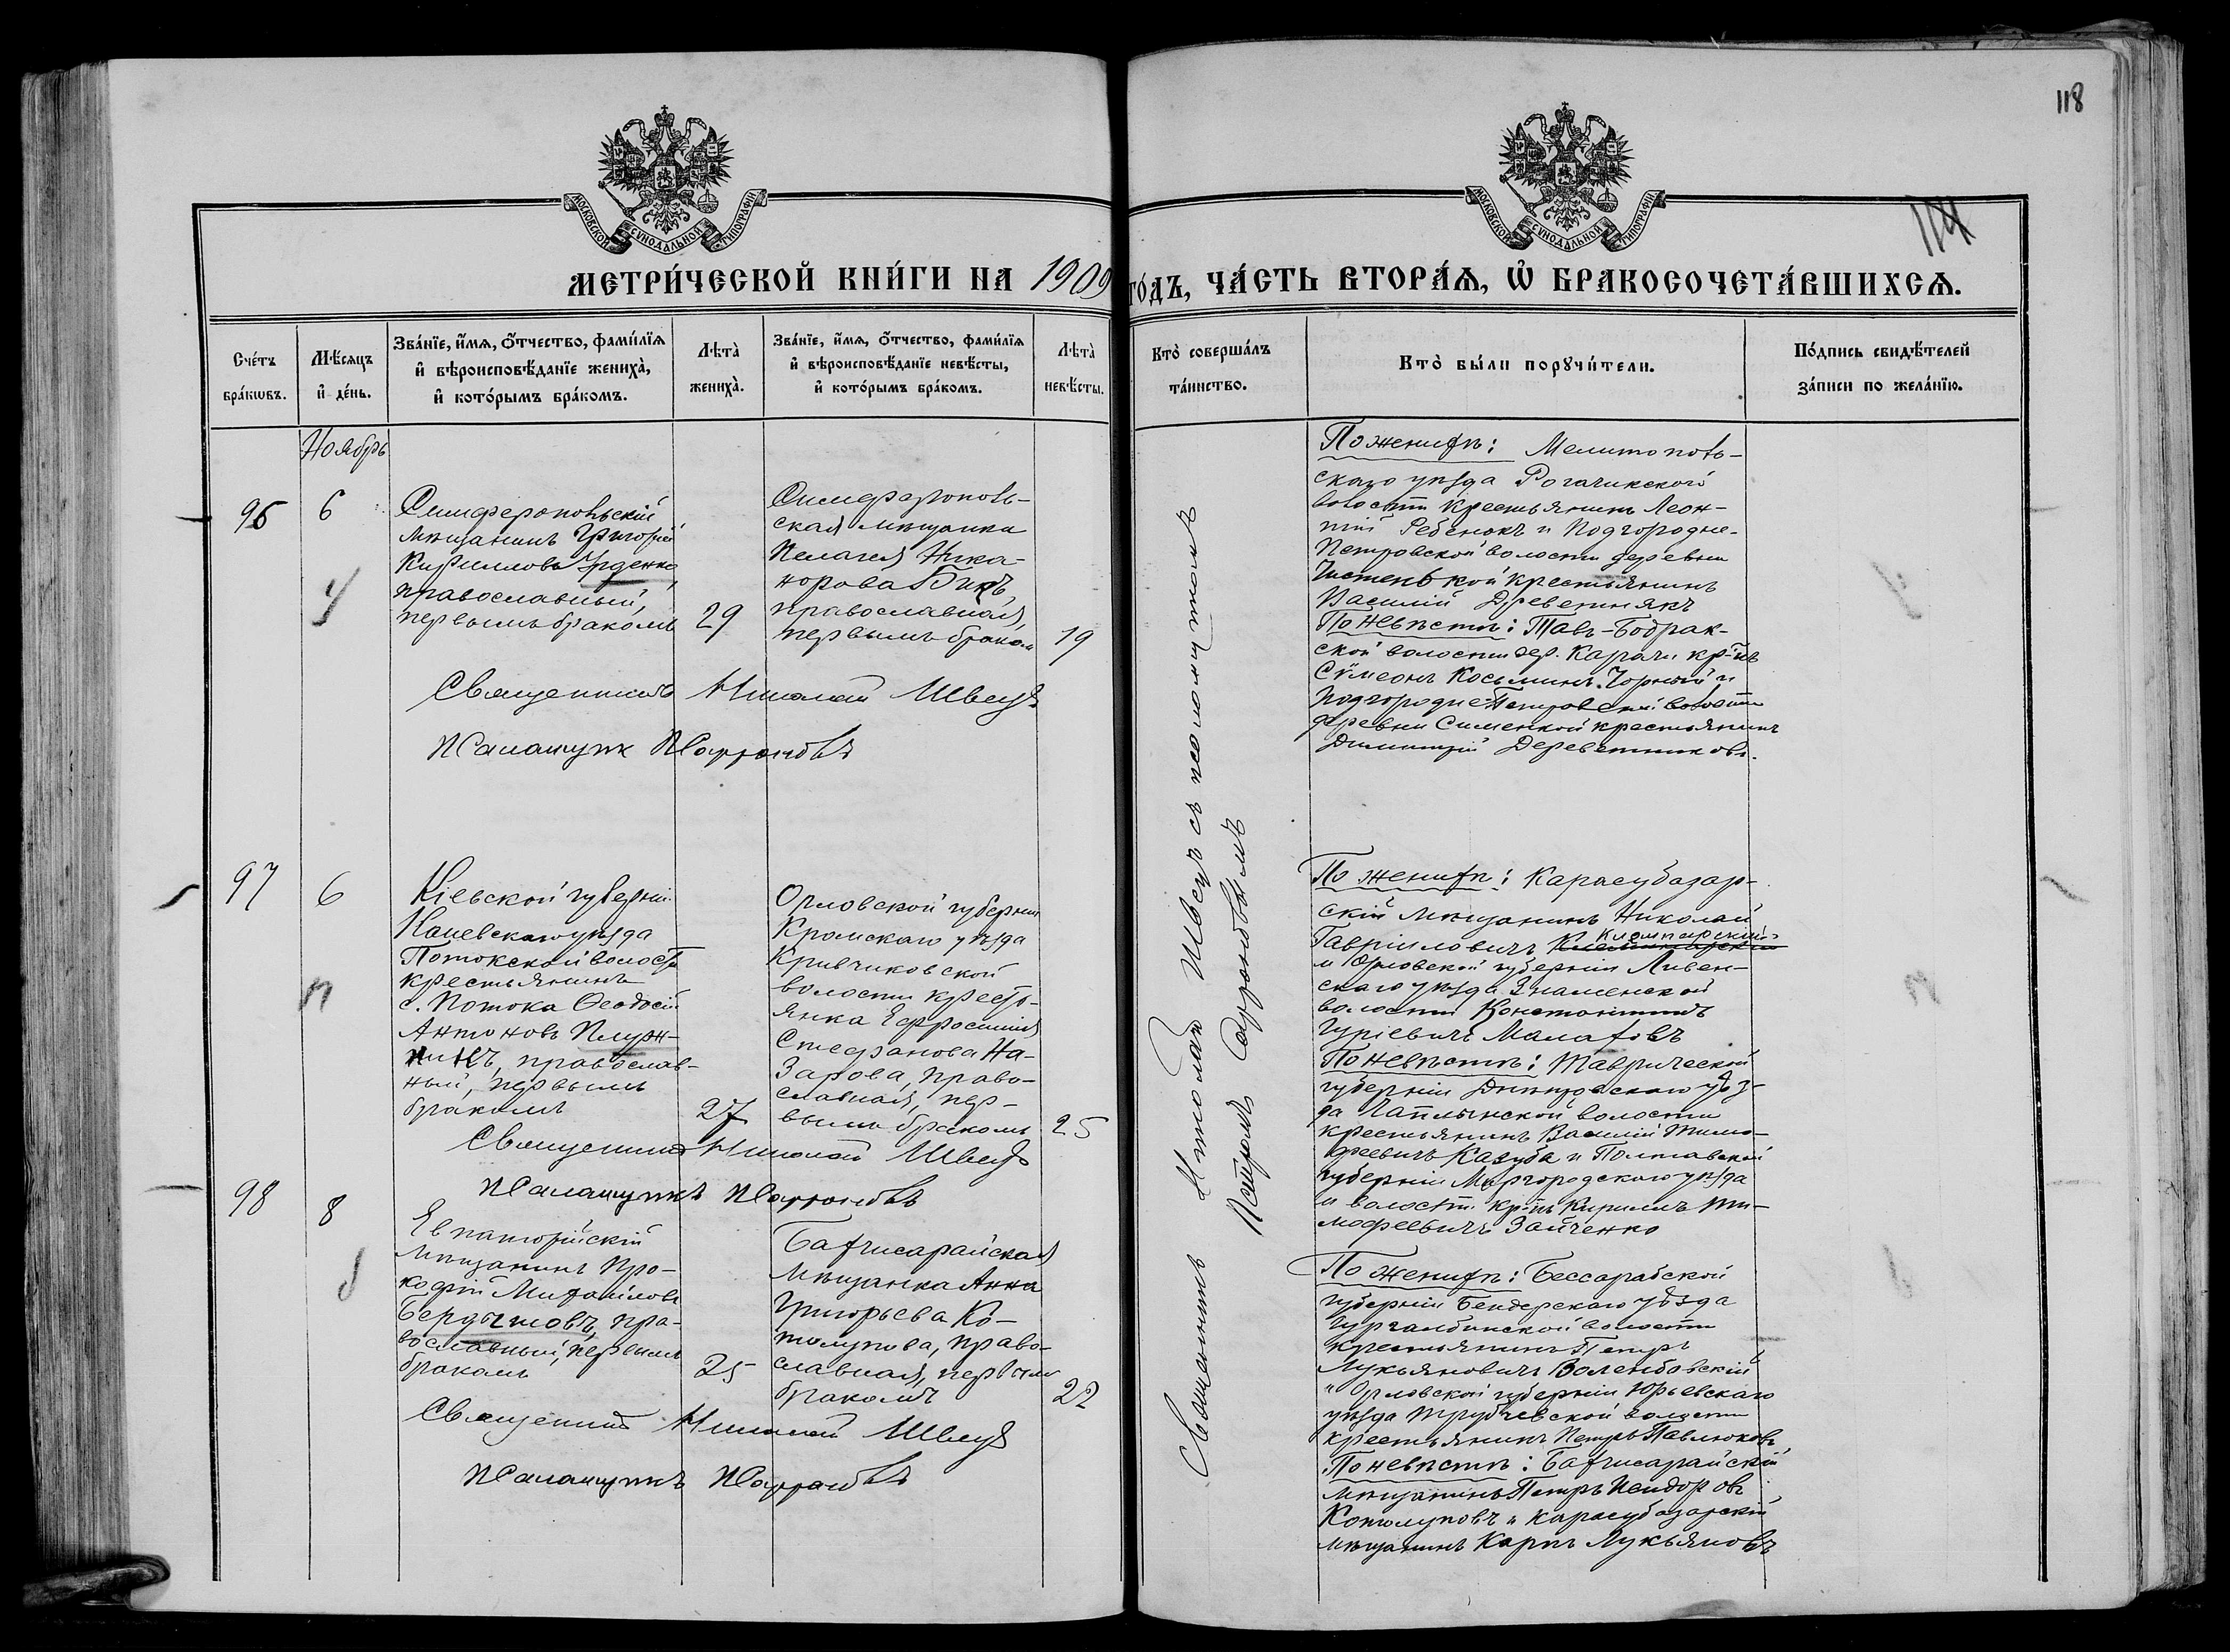 118
114
МОСКОВСКОЙ СѴНОДАЛЬНОЙ ТИПОГРАФІИ
МОСКОВСКОЙ СѴНОДАЛЬНОЙ ТИПОГРАФІИ
МЕТРИ́ЧЕСКОЙ КНИ́ГИ НА 1909 ГО́ДЪ, ЧА́СТЬ ВТОРА́Ѧ, Ѽ БРАКОСОЧЕТА́ВШИХСѦ.
Сче́тъ
бра́кѡвъ.
Мѣ́сѧцъ
и҆ де́нь.
Зва́нїе, и҆́мѧ, ѻ҆́тчество, фами́лїѧ
и҆ вѣроисповѣ́данїе жениха̀,
и҆ кото́рымъ бра́комъ.
Лѣта̀
жениха̀.
Зва́нїе, и҆́мѧ, ѻ҆́тчество, фами́лїѧ
и҆ вѣроисповѣ́данїе невѣ́сты,
и҆ кото́рымъ бра́комъ.
Лѣта̀
невѣ́сты.
Кто̀ соверша́лъ
та́инство.
Кто̀ бы́ли порꙋчи́тели.
По́дпись свидѣ́телей
за́писи по жела́нїю.
Ноябрь
96
6
Симферопольскій
мѣщанинъ Григорій
Кирилловъ Урденко,
православный,
первымъ бракомъ
29
Симферополь-
ская мѣщанка
Пелагея Ника-
норова Бикъ,
православная,
первымъ браком
19
Священникъ Николай Швецъ
Псаломщик П Сафроновъ
По женихѣ: Мелитополь-
скаго уѣзда Рогачикской
волости крестьянинъ Леон-
тій Ребенокъ и Подгородне-
Петровской волости деревни
Чистенькой крестьянинъ
Василій Древетнякъ
По невѣстѣ: Тавъ-Бодрак-
ской волости дер. Карачи кр-нъ
Сѵмеонъ Косьминъ Чорный и
Подгородне-Петровской волости
деревни Сименкой крестьянинъ
Димитрій Деревянниковъ.
Священникъ Николай Швецъ съ псаломщикомъ
Петромъ Сафроновымъ
97
6
Кіевской губерніи
Каневскаго уѣзда
Потокской волости
крестьянинъ
с. Потока Ѳеодосій
Антоновъ Плуж-
никъ, православ-
ный, первымъ
бракомъ
27
Орловской губерніи
Кромскаго уѣзда
Кривчиковской
волости кресть-
янка Ефросинія
Стефанова На-
зарова, право-
славная, пер-
вымъ бракомъ
25
Священникъ Николай Швецъ
Псаломщикъ П Сафроновъ
По женихѣ: Карасубазар-
скій мѣщанинъ Николай
Гавріиловичъ Кломпарскій
и Орловской губерніи Ливен-
скаго уѣзда Знаменской
волости Константинъ
Гуріевичъ Малаховъ
По невѣстѣ: Таврической
губерніи Днѣпровскаго уѣз-
да Чаплынской волости
крестьянинъ Василій Тимо-
феевичъ Казуба и Полтавской
губерніи Миргородскаго уѣзда
и волости кр-нъ Кириллъ Ти-
мофеевичъ Зайченко
98
8
Евпаторійскій
мѣщанинъ Про-
кофій Михайловъ
Бердышовъ, пра-
вославный, первымъ
бракомъ
25
Бахчисарайская
мѣщанка Анна
Григорьева Ко-
толупова, право-
славная, первымъ
бракомъ
22
Священникъ Николай Швецъ
Псаломщикъ П Сафроновъ
По женихѣ: Бессарабской
губерніи Бендерскаго уѣзда
волости
крестьянинъ Петръ
Лукьяновичъ
и Орловской губерніи Юрьевскаго
уѣзда Трубчевской волости
крестьянинъ Петръ Павлюковъ
По невѣстѣ: Бахчисарайскій
мѣщанинъ Петръ Исидоровъ
Котолуповъ и Карасубазарскій
мѣщанинъ Карпъ Лукьяновъ